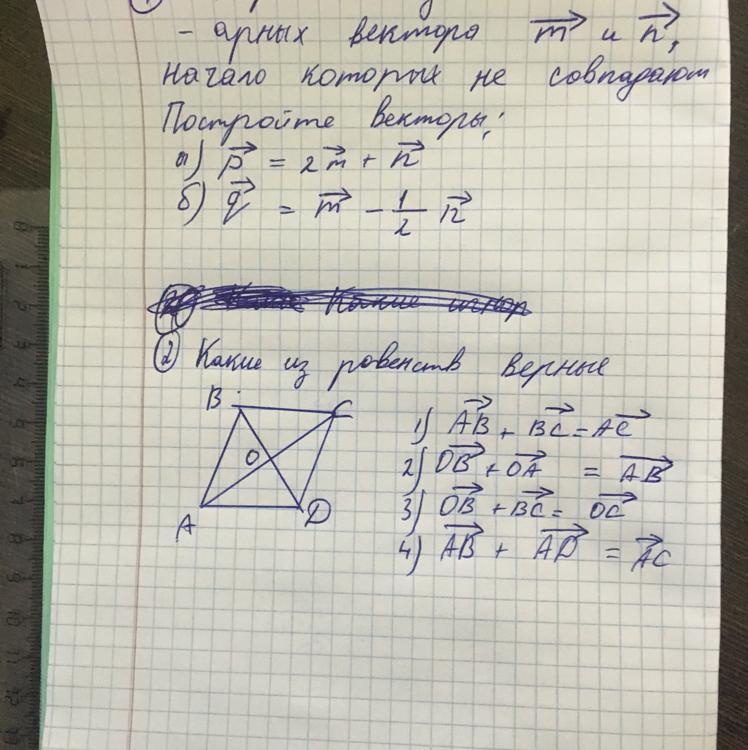 - арных вектора m и n,
начало которых не совпадают
Постройте векторы:
а) p = 2m + n
б) q = m - 1/2 n
Какие
② Какие из ровенств верные
B C
O
A D
1) AB + BC = AC
2) OB + OA = AB
3) OB + BC = OC
4) AB + AD = AC